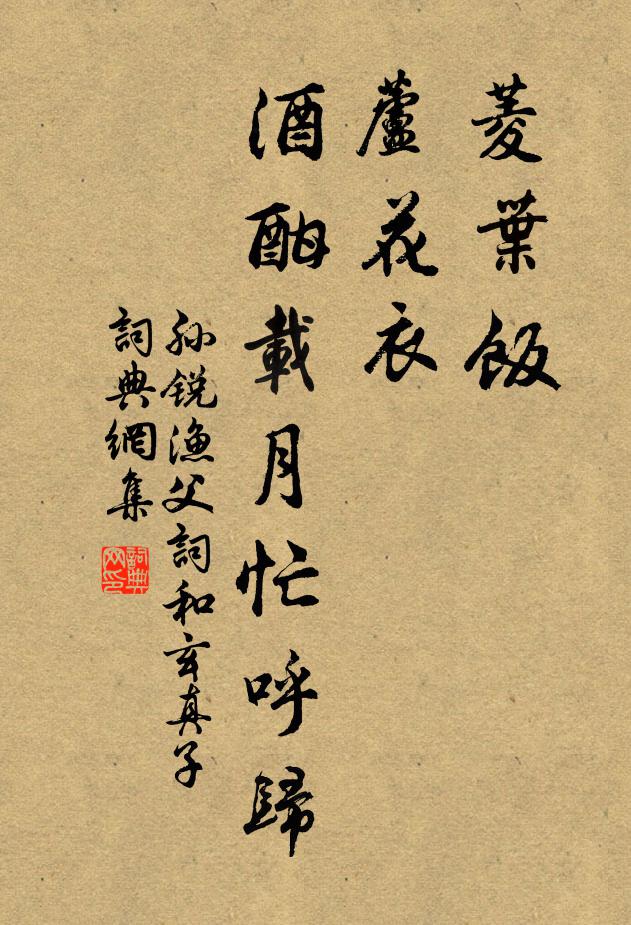 菱葉飯
蘆花衣
酒酣載月忙呼歸
孫銳漁父詞和玄真子
詞典網集
詞典網印